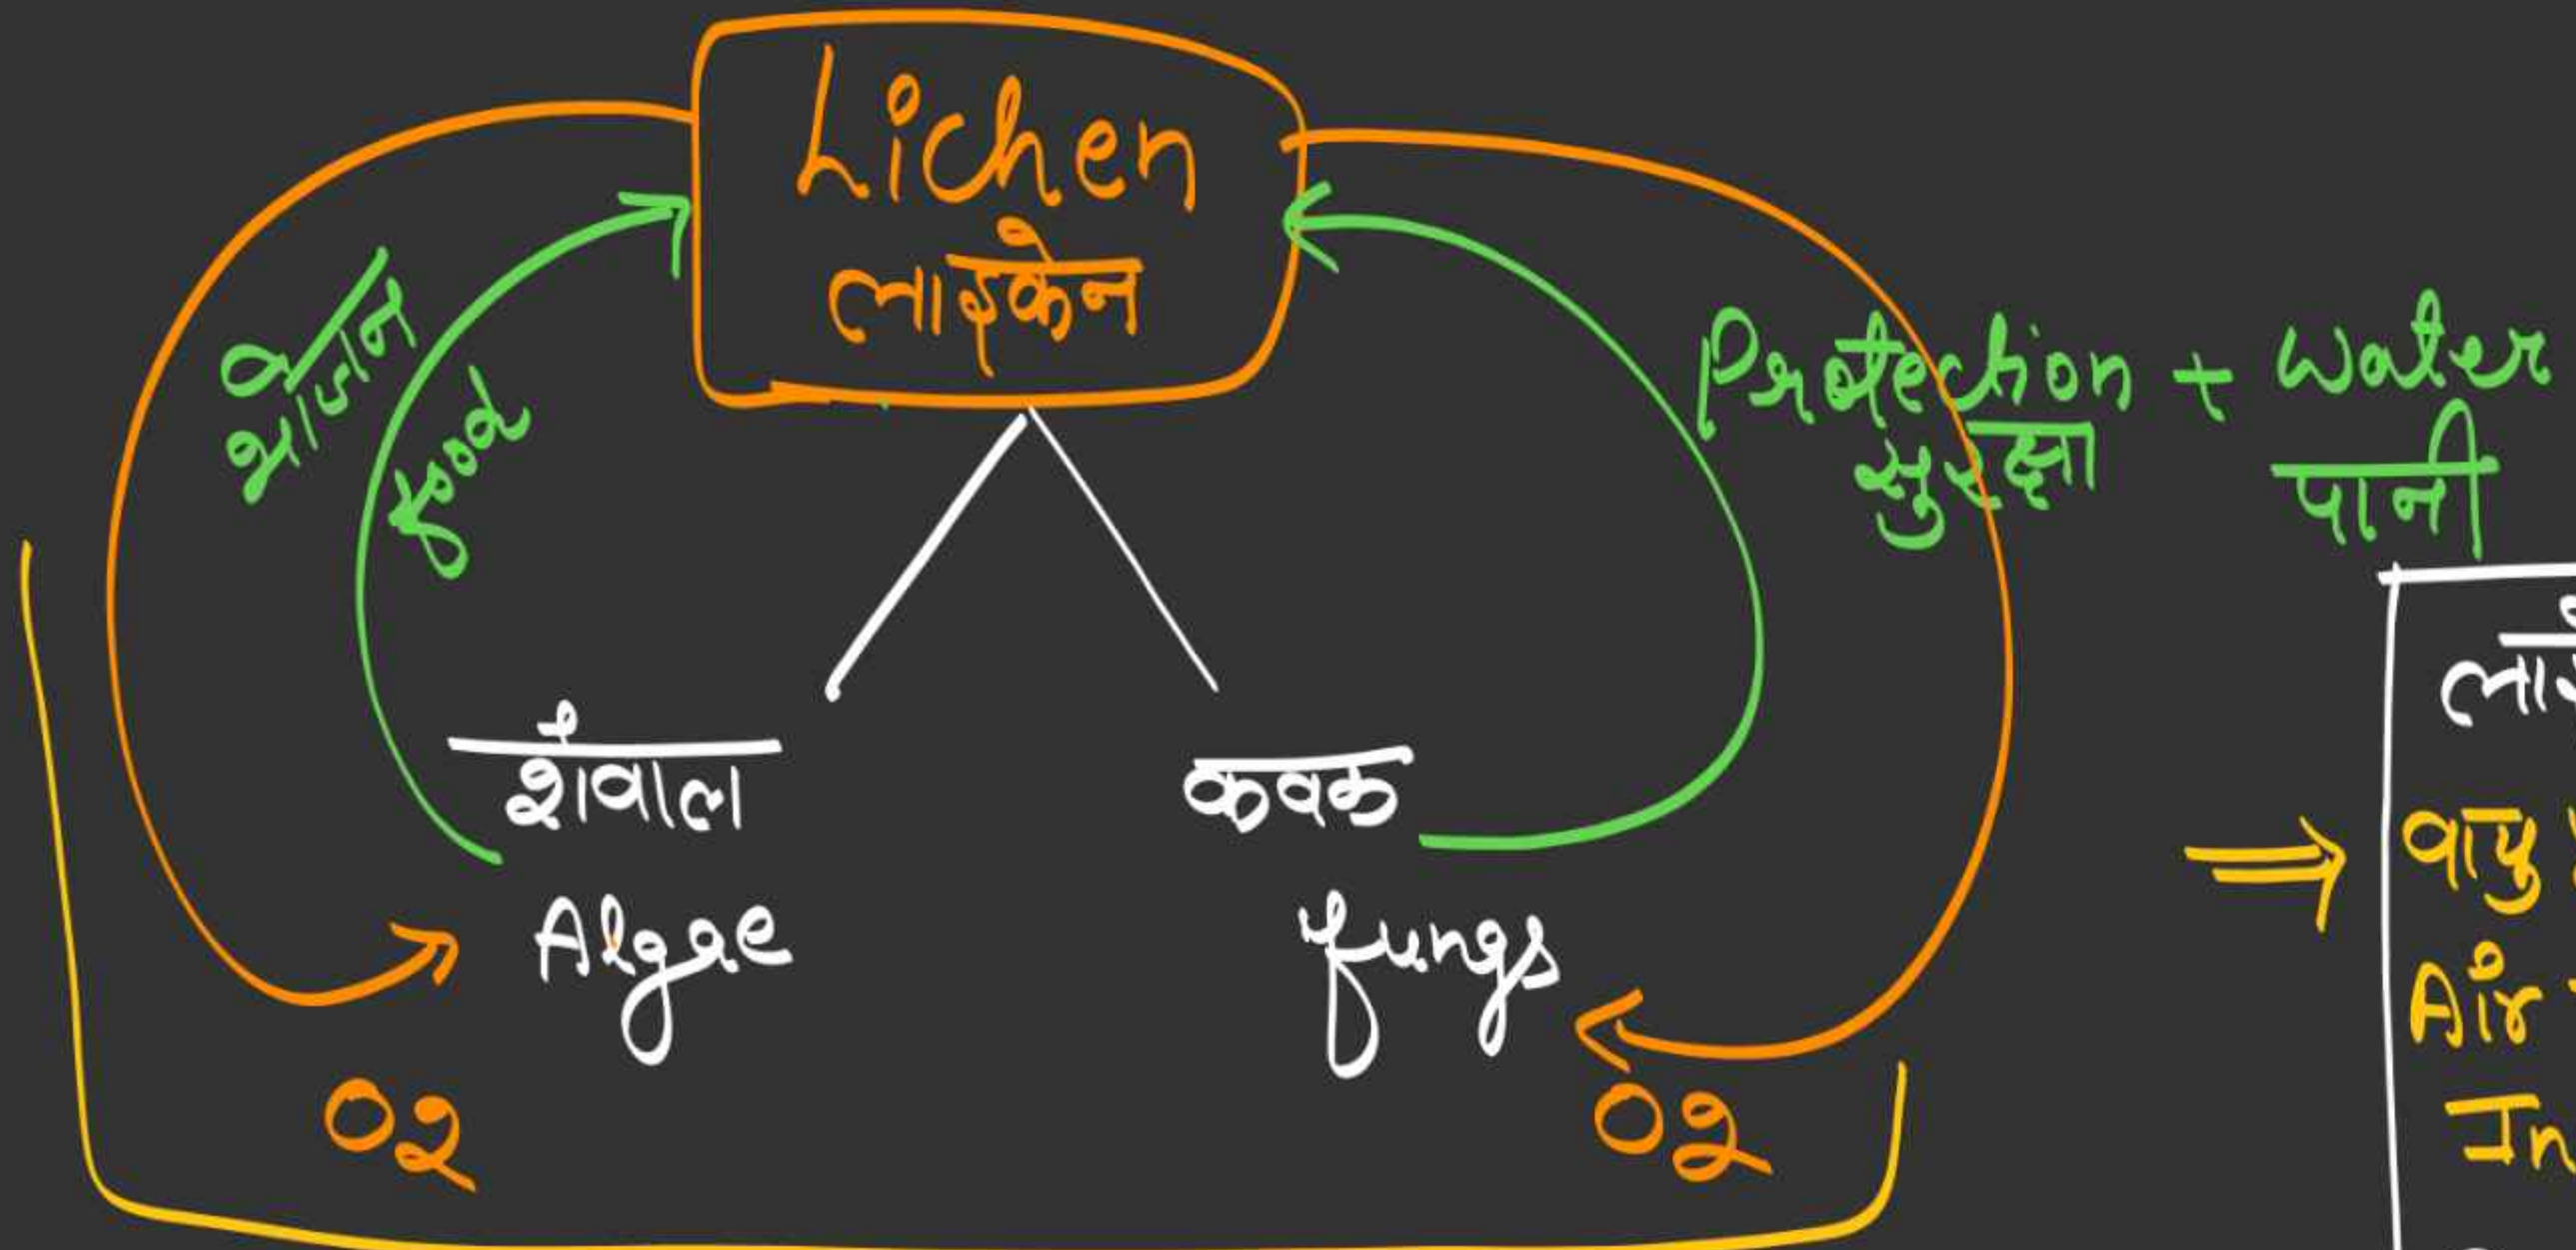 Lichen
लाइकेन
भोजन
food
Protection + Water
सुरक्षा पानी
शैवाल
कवक
Algae
fungs
O2
O2
वायु
Air
In